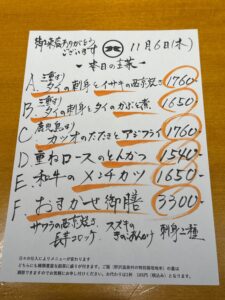 御来店ありがとう
ございます
11月6日(木)
〜本日の主菜〜
A. 三重産
タイの刺身とイサキの西京焼き 1760-
B. 三重産
タイの刺身とタイのかぶと煮 1650-
C. 鹿児島産
カツオのたたきとアジフライ 1760-
D. 重ねロースのとんかつ 1540-
E. 和牛のメンチカツ 1650-
F. おまかせ御膳 3300-
サワラの西京焼き スズキの
長芋コロッケ きのこあんかけ 刺身二種
日々の仕入によりメニューが変わります